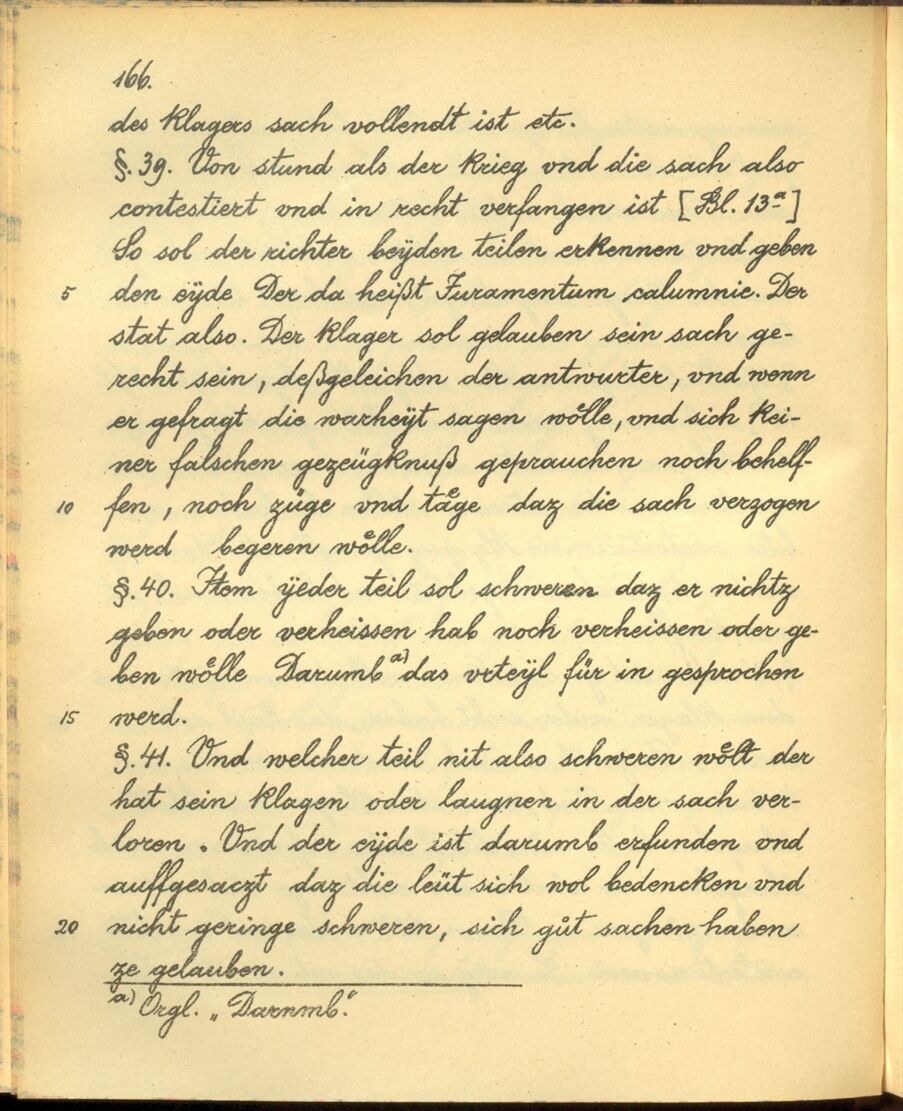 166.
des klagers sach vollendt ist etc.
§. 39. Von stund als der krieg vnd die sach also
contestiert vnd in recht verfangen ist [Bl. 13ᵃ]
So sol der richter beÿden teilen erkennen vnd geben
5 den eÿde Der da heißt Juramentum calumnie. Der
stat also. Der klager sol gelauben sein sach ge-
recht sein, deßgeleichen der antwurter, vnd wenn
er gefragt die warheÿt sagen woͤlle, vnd sich kei-
ner falschen gezeügknuß geprauchen noch behelf-
10 fen, noch züge vnd taͤge daz die sach verzogen
werd begeren woͤlle.
§. 40. Item ÿeder teil sol schweren daz er nichtz
geben oder verheissen hab noch verheissen oder ge-
ben woͤlle Darumb ᵃ⁾ das vrteÿl für in gesprochen
15 werd.
§. 41. Vnd welcher teil nit also schweren woͤlt der
hat sein klagen oder laugnen in der sach ver-
loren. Vnd der eÿde ist darumb erfunden vnd
auffgesaczt daz die leüt sich wol bedencken vnd
20 nicht geringe schweren, sich guͦt sachen haben
ze gelauben.
ᵃ⁾ Orgl. „Darnmb.“